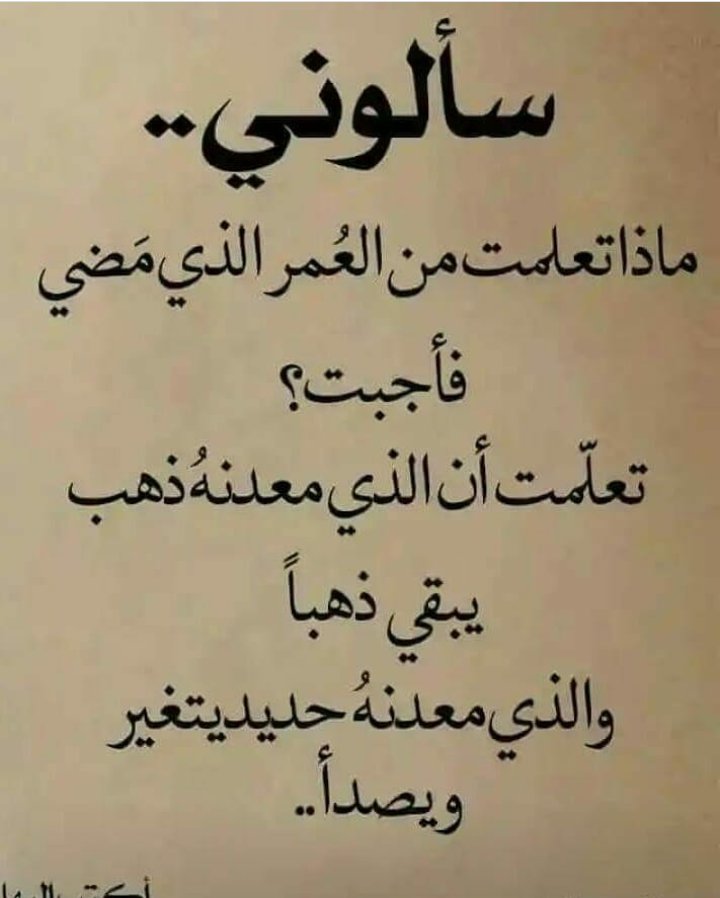 سألوني..
ماذا تعلمت من العُمر الذي مَضي
فأجبت؟
تعلّمت أن الذي معدنهُ ذهب
يبقي ذهباً
والذي معدنهُ حديد يتغير
ويصدأ..